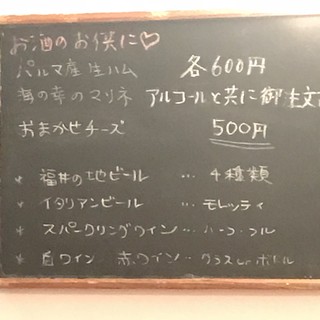 お酒のお供に♡
パルマ産生ハム 各600円
海の幸のマリネ アルコールと共に御注文
おまかせチーズ 500円
* 福井の地ビール … 4種類
* イタリアンビール … モレッティ
* スパークリングワイン … ハーフ・フル
* 白ワイン 赤ワイン … グラス or ボトル